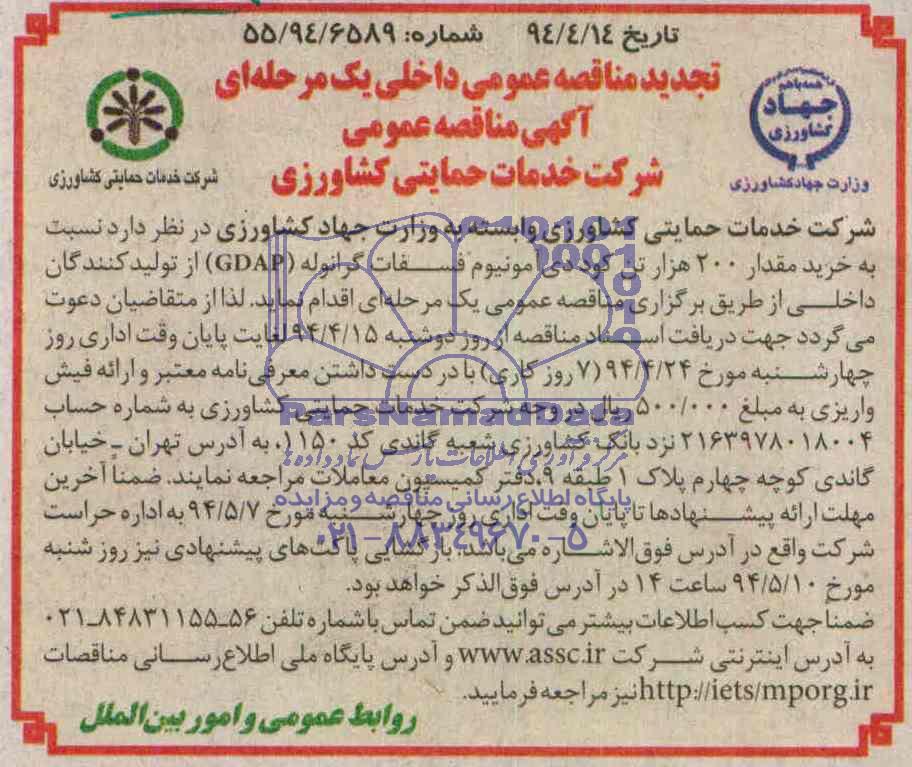 تاریخ ۹۴/۴/۱۴ شماره: ۵۵/۹۴/۶۵۸۹
تجدید مناقصه عمومی داخلی یک مرحله‌ای
آگهی مناقصه عمومی
شرکت خدمات حمایتی کشاورزی
همه با هم
جهاد
کشاورزی
وزارت جهاد کشاورزی
شرکت خدمات حمایتی کشاورزی
شرکت خدمات حمایتی کشاورزی وابسته به وزارت جهاد کشاورزی در نظر دارد نسبت
به خرید مقدار ۲۰۰ هزار تن کود دی آمونیوم فسفات گرانوله (GDAP) از تولیدکنندگان
داخلی از طریق برگزاری مناقصه عمومی یک مرحله‌ای اقدام نماید. لذا از متقاضیان دعوت
می گردد جهت دریافت اسناد مناقصه از روز دوشنبه ۹۴/۴/۱۵ لغایت پایان وقت اداری روز
چهارشنبه مورخ ۹۴/۴/۲۴ (۷ روز کاری) با در دست داشتن معرفی‌نامه معتبر و ارائه فیش
واریزی به مبلغ ۵۰۰/۰۰۰ ریال در وجه شرکت خدمات حمایتی کشاورزی به شماره حساب
۲۱۶۳۹۷۸۰۱۸۰۰۴ نزد بانک کشاورزی شعبه گاندی کد ۱۱۵۰، به آدرس تهران ـ خیابان
گاندی کوچه چهارم پلاک ۱ طبقه ۹، دفتر کمیسیون معاملات مراجعه نمایند. ضمناً آخرین
مهلت ارائه پیشنهادها تا پایان وقت اداری روز چهارشنبه مورخ ۹۴/۵/۷ به اداره حراست
شرکت واقع در آدرس فوق‌الاشاره می‌باشد، بازگشایی پاکت‌های پیشنهادی نیز روز شنبه
مورخ ۹۴/۵/۱۰ ساعت ۱۴ در آدرس فوق‌الذکر خواهد بود.
ضمنا جهت کسب اطلاعات بیشتر می توانید ضمن تماس با شماره تلفن ۵۶ـ۸۴۸۳۱۱۵۵ـ۰۲۱
به آدرس اینترنتی شرکت www.assc.ir و آدرس پایگاه ملی اطلاع‌رسانی مناقصات
http://iets/mporg.ir نیز مراجعه فرمایید.
روابط عمومی و امور بین‌الملل
ParsNamadData
مرکز فرآوری اطلاعات پارس نماد داده ها
پایگاه اطلاع رسانی مناقصه و مزایده
۰۲۱-۸۸۳۴۹۶۷۰-۵